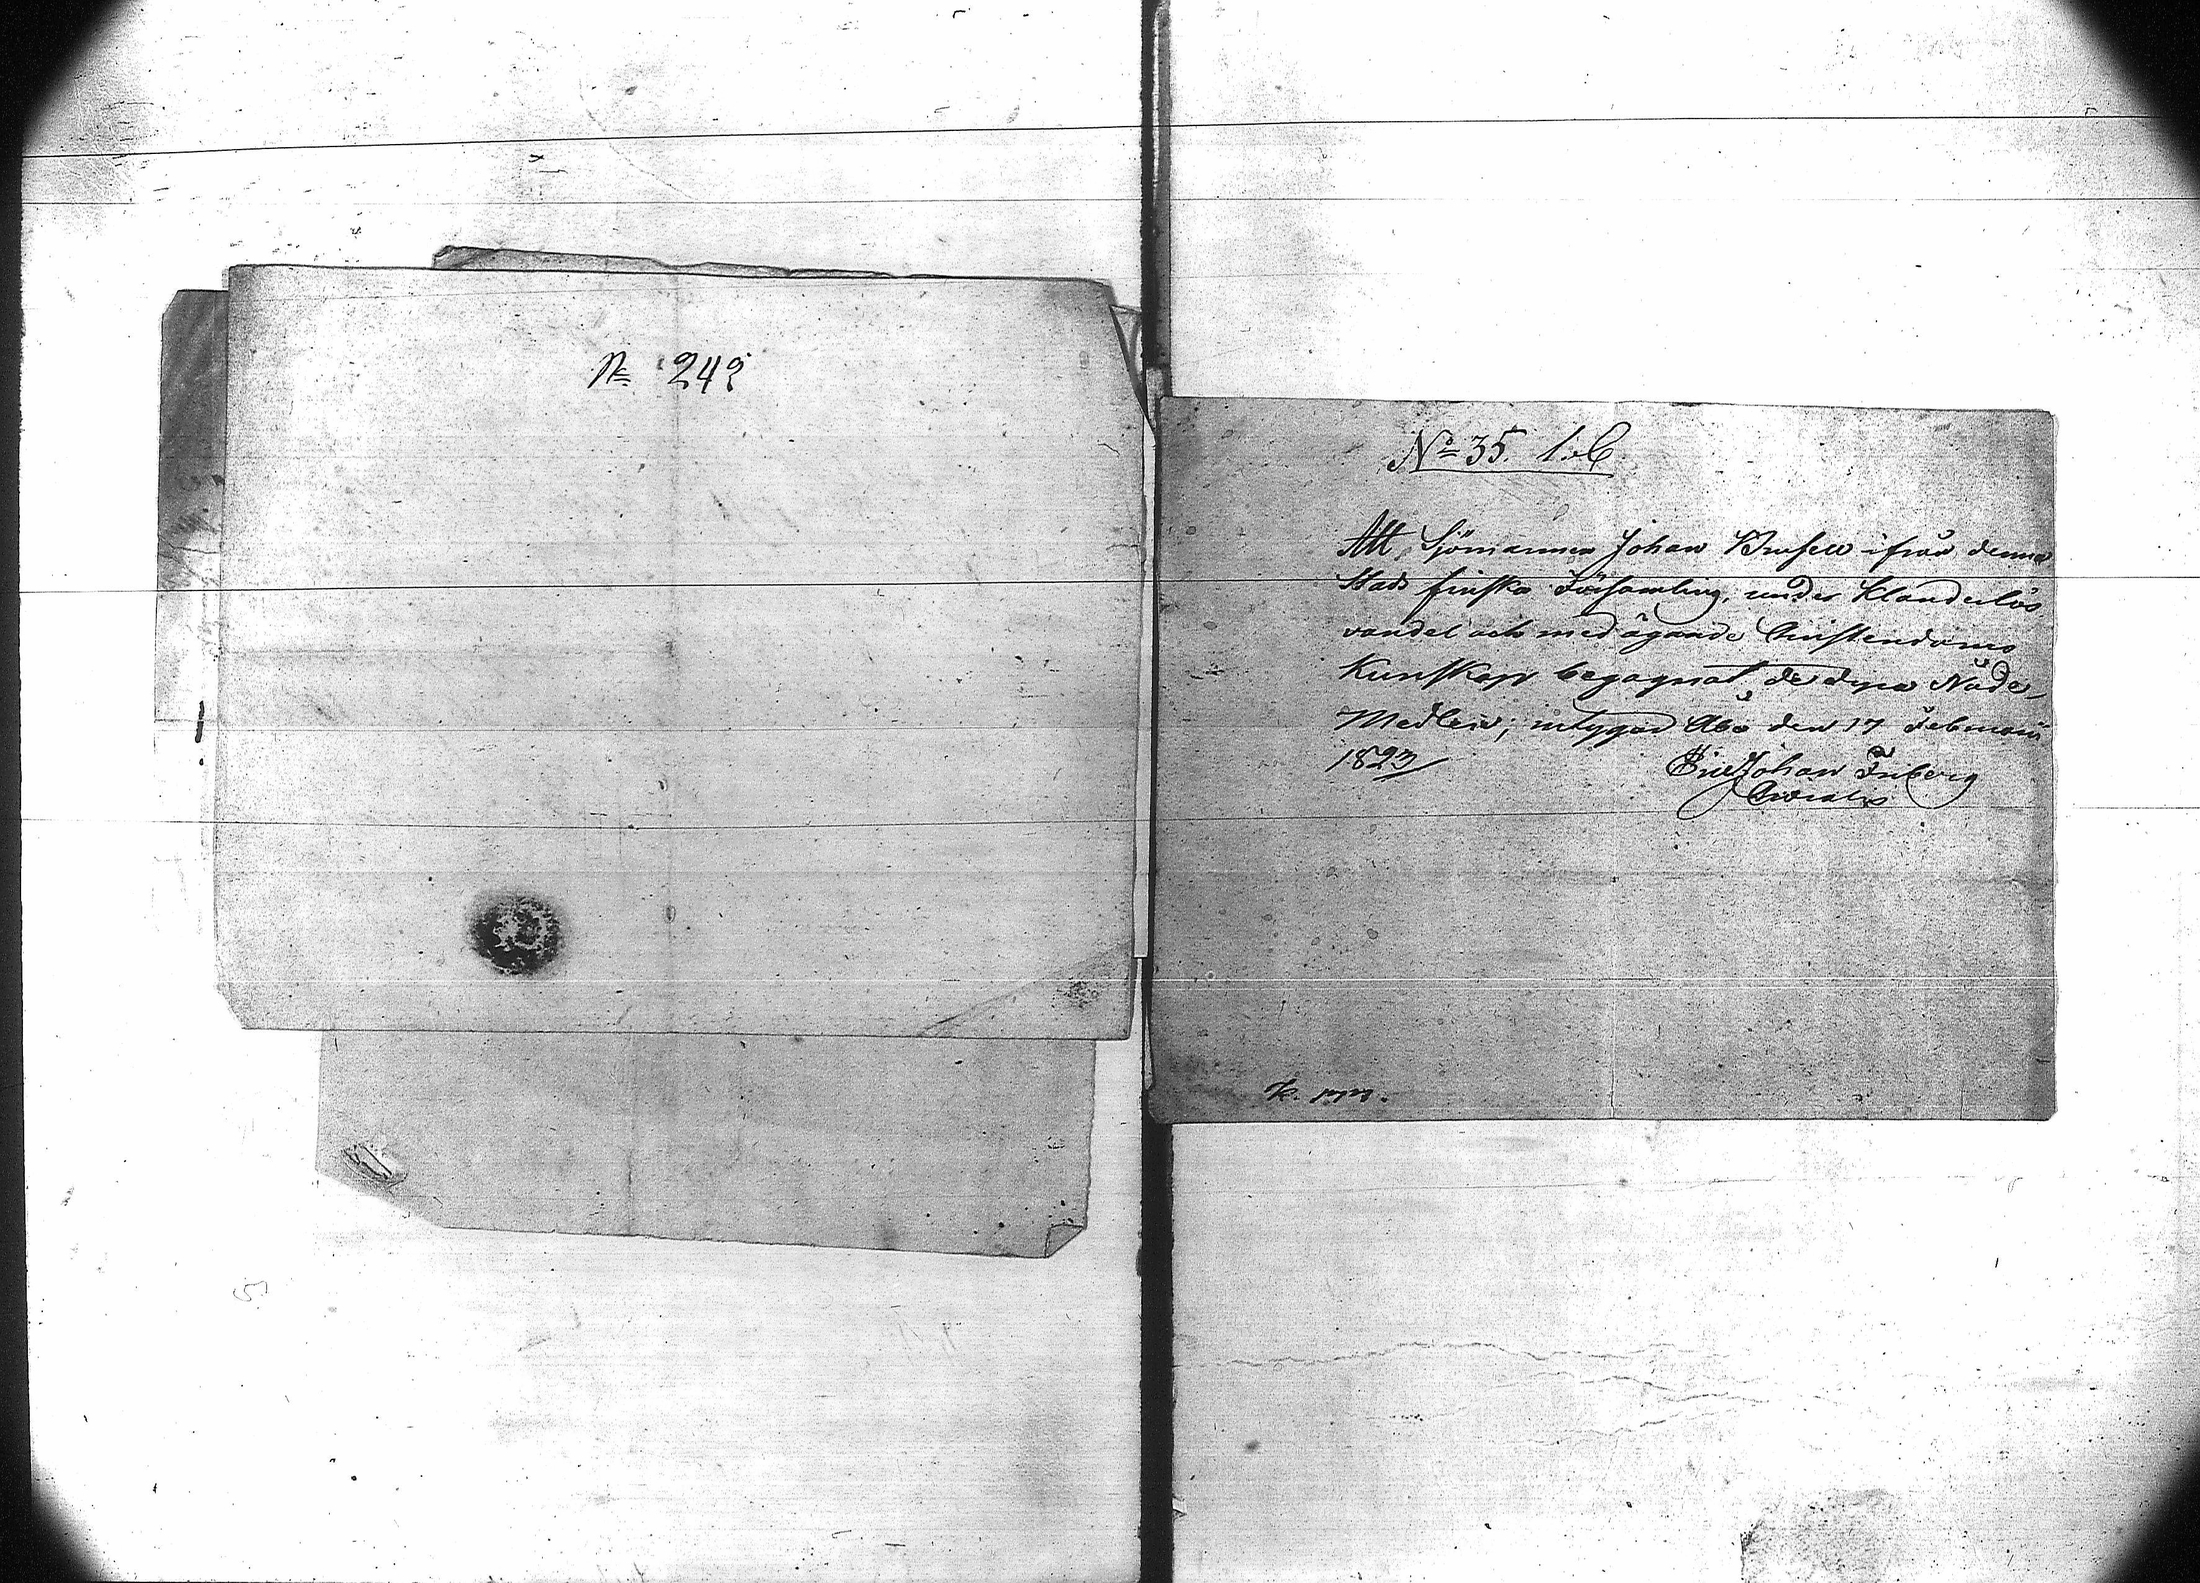 No 242
No 35. 1 C
Att Sjömannen Johan ifrån denna
Stads finska Församling, under klanderlös
vandel och med ägande Christendoms
Kunskap begagnat de dyra Nåde-
Medlen; intygar Åbo den 17 Februarii
1823/
Eric Johan Friberg